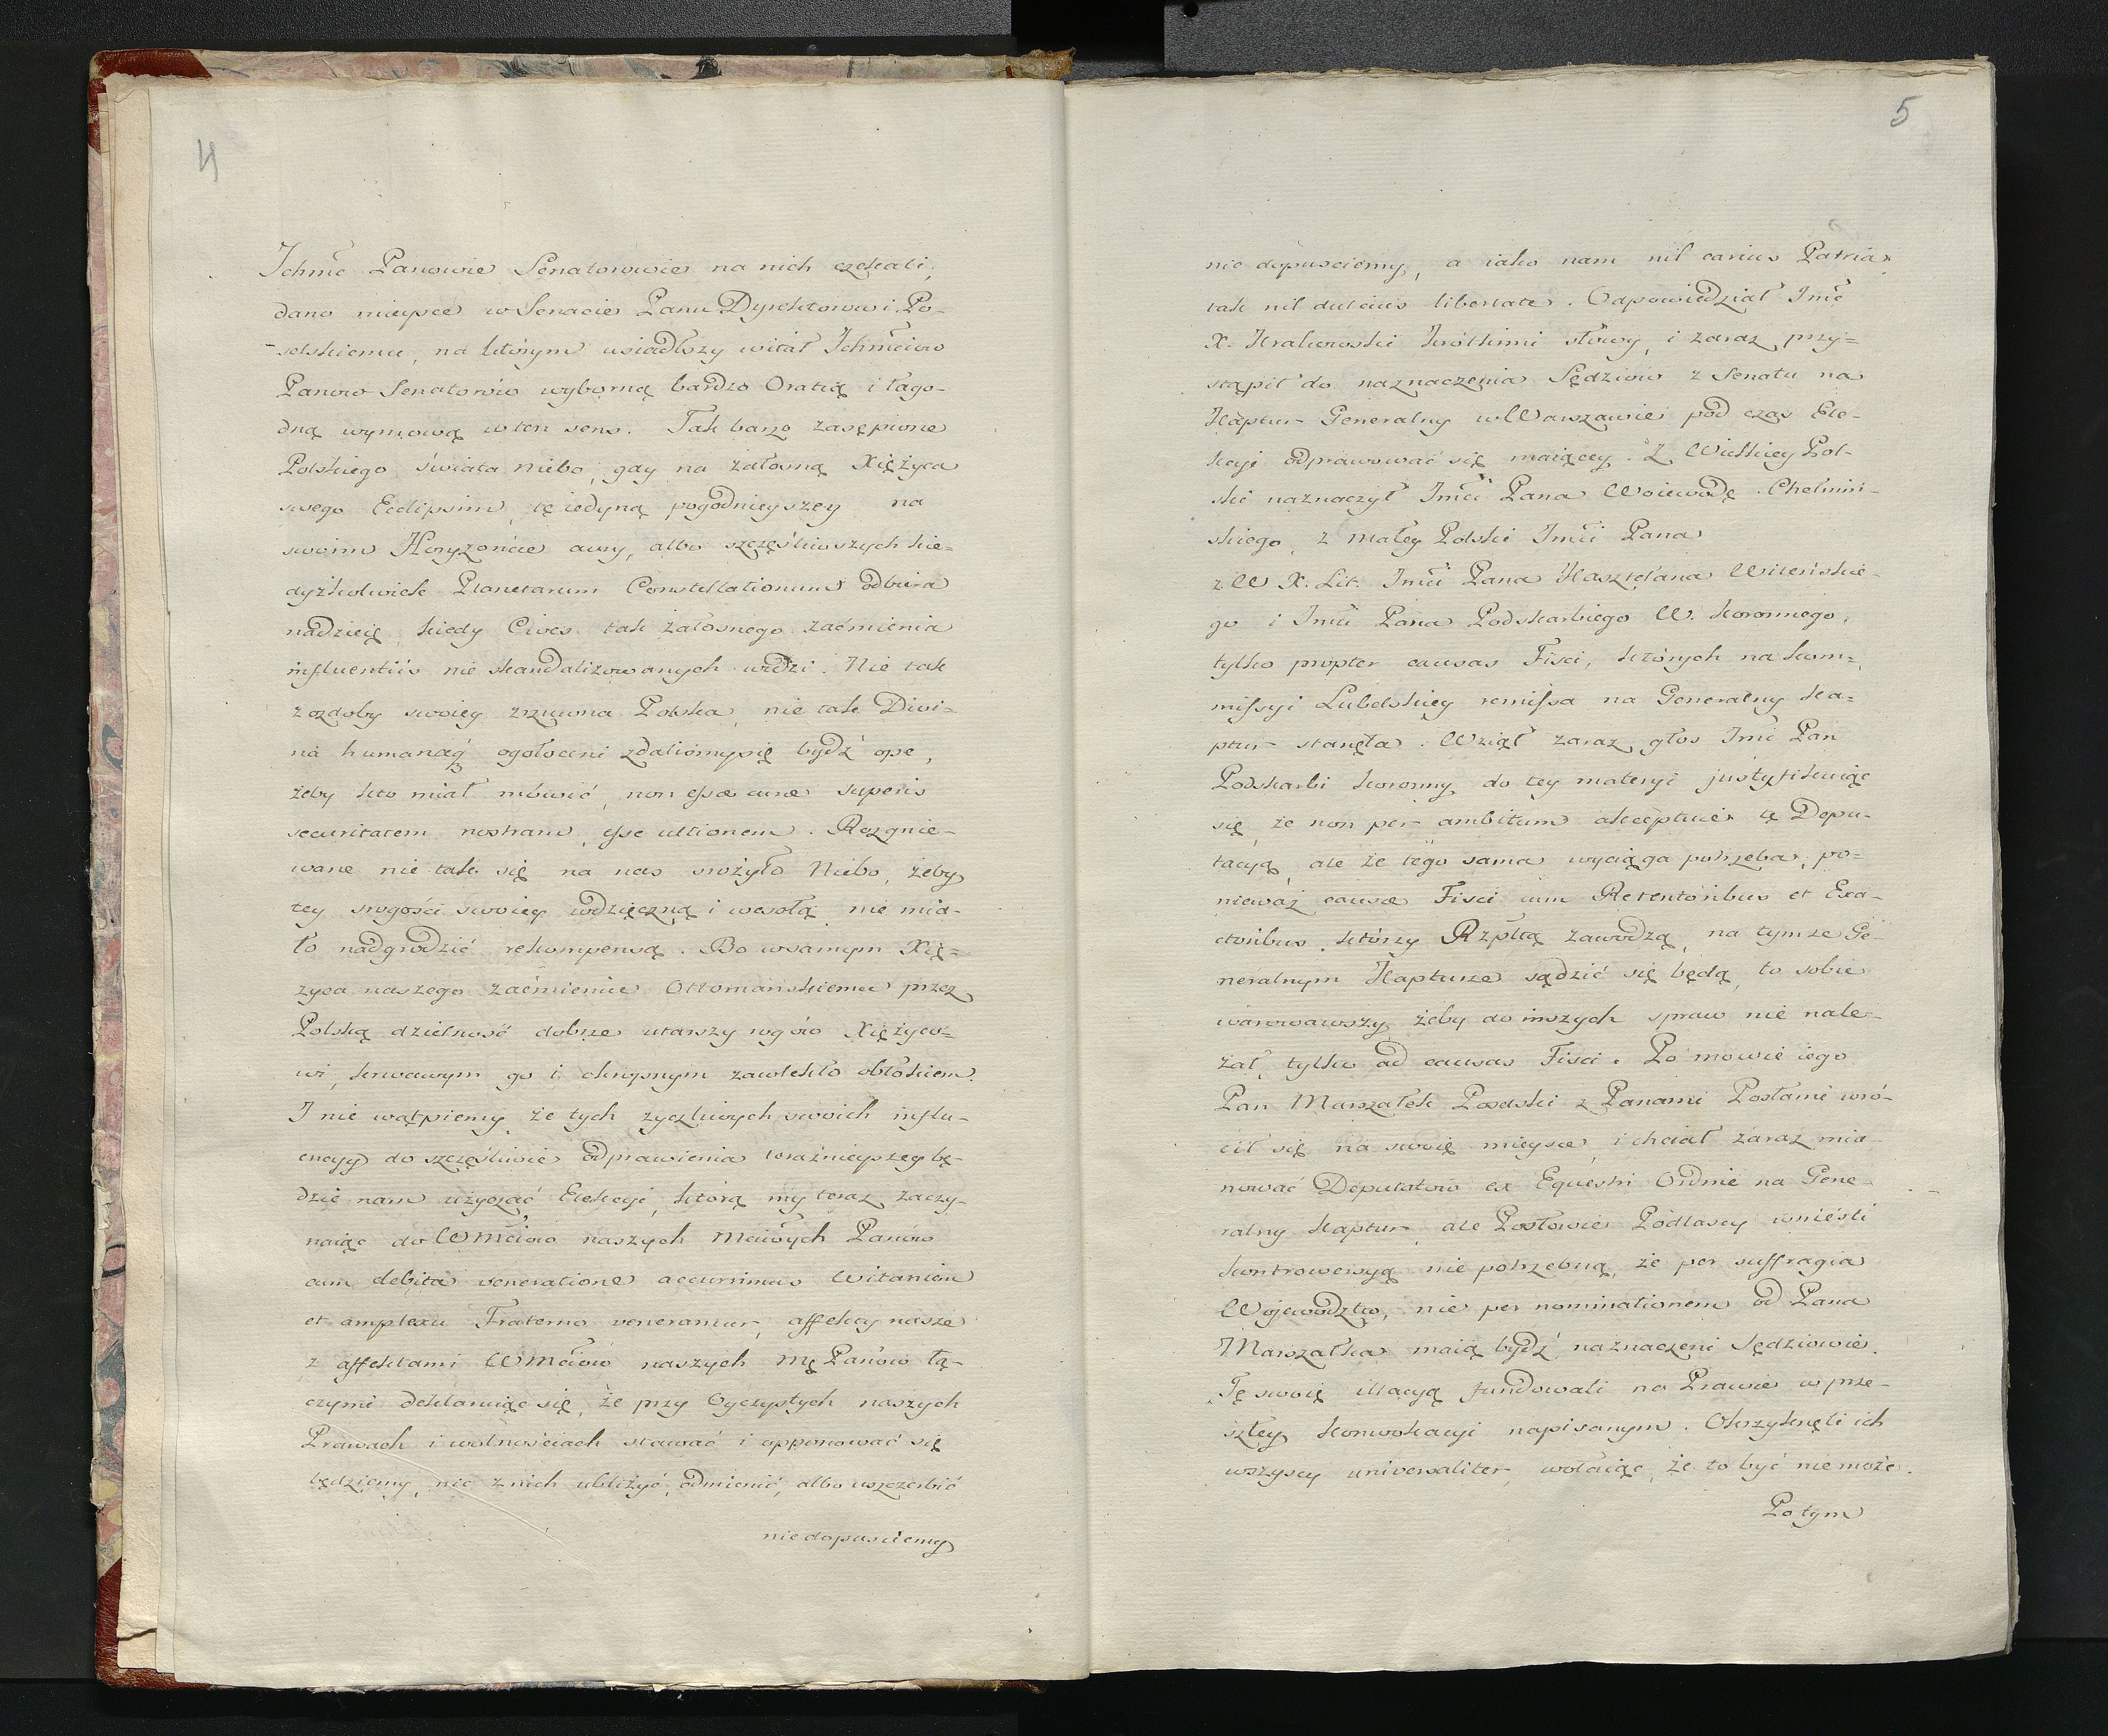 4
Ichmć Panowie Senatorowie na nich czekali,
dano mieysce w Senacie Panu Dyrektorowi Po-
-selskiemu, na którym usiadłszy witał Ichmćiow
Panow Senatorów wyborną bardzo Oratią i łago-
dną wymową w ten sens. Tak barzo zasępione
Polskiego świata niebo, gdy na żałosną Xiężyca
swego Eclipsim, tę iedyną pogodnieyszey na
swoim Horyzońcie aury, albo szczęśliwszych kie-
dyżkolwiek Planetarum Constellationum odbiera
nadzieię, kiedy Cives tak żałosnego zaćmienia
influentiis nie skandalizowanych widzi. Nie tak
z ozdoby swoiey zzuwna Polska, nie tak Divi-
na humanaq́ ogołoceni zdaliśmy się bydź ope,
żeby kto miał mówić, non esse curæ superis
securitatem nostram, esse ultionem. Rozgnie-
wane nie tak się na nas srożyło Niebo, żeby
tey srogości swoiey wdzięczną i wesołą nie mia-
ło nadgrodzić rekompensą. Bo w samym Xię-
życa naszego zaćmieniu Ottomańskiemu przez
Polską dzielność dobrze utarszy rogów Xiężyco-
wi, krwawym go i okropnym zawlekło obłokiem.
I nie wątpiemy, że tych życzliwych swoich influ-
encyy do szczęśliwie odprawienia ważnieyszey bę-
dzie nam użyczać Elekcyi, którą my teraz zaczy-
naiąc do Wmćiow naszych Mćiwych Panów
cum debita veneratione accurrimus Witaniem
et amplexu Fraterno veneramur, affekty nasze
z affektami Wmćiow naszych Mę Panow łą-
czymi deklaruiąc się, że przy Oyczystych naszych
Prawach i wolnościach stawać i opponować się
będziemy, nic z nich ubliżyć, odmienić, albo uszczerbić
nie dopuściemy
5
nie dopuściemy, a iako nam nil carius Patria,
tak nil dulcius libertate. Odpowiedział Jmć
X. Krakowski krótkimi słowy, i zaraz przy-
stąpił do naznaczenia Sędziow z Senatu na
Kaptur Generalny w Warszawie pod czas Ele-
kcyi odprawować się maiącey. Z Wielkiey Pol-
ski naznaczył Jmći Pana Woiewodę Chełmiń-
skiego, z małey Polski Jmći Pana
z W X. Lit. Jmći Pana Kasztelana Wileńskie-
go i Jmći Pana Podskarbiego W. koronnego,
tylko propter causas Fisci, których na kom-
missyi Lubelskiey remissa na Generalny Ka-
ptur stanęła. Wziął zaraz głos Jmć Pan
Podskarbi koronny do tey materyi justyfikuiąc
się, że non per ambitum akceptuie tę Depu-
tacyą, ale że tego sama wyciąga potrzeba, po-
nieważ causæ Fisci cum Retentoribus et Exa-
ctoribus, którzy Rzpltą zawodzą, na tymże Ge-
neralnym Kapturze sądzić się będą, to sobie
warowawszy, żeby do inszych spraw nie nale-
żał, tylko ad causas Fisci. Po mowie iego
Pan Marszałek Poselski z Panami Posłami wró-
cił się na swoię mieysce, i chciał zaraz mia-
nować Deputatow ex Equestri Ordine na Gene-
ralny Kaptur, ale Posłowie Podlascy wnieśli
kontrowersyą nie potrzebną, że per suffragia
Wojewodztw, nie per nominationem od Pana
Marszałka maią bydź naznaczeni Sędziowie.
Tę swoię illacyą fundowali na Prawie w prze-
szłey Konwokacyi napisanym. Okrzyknęli ich
wszyscy universaliter, wołaiąc, że to być nie może.
Po tym